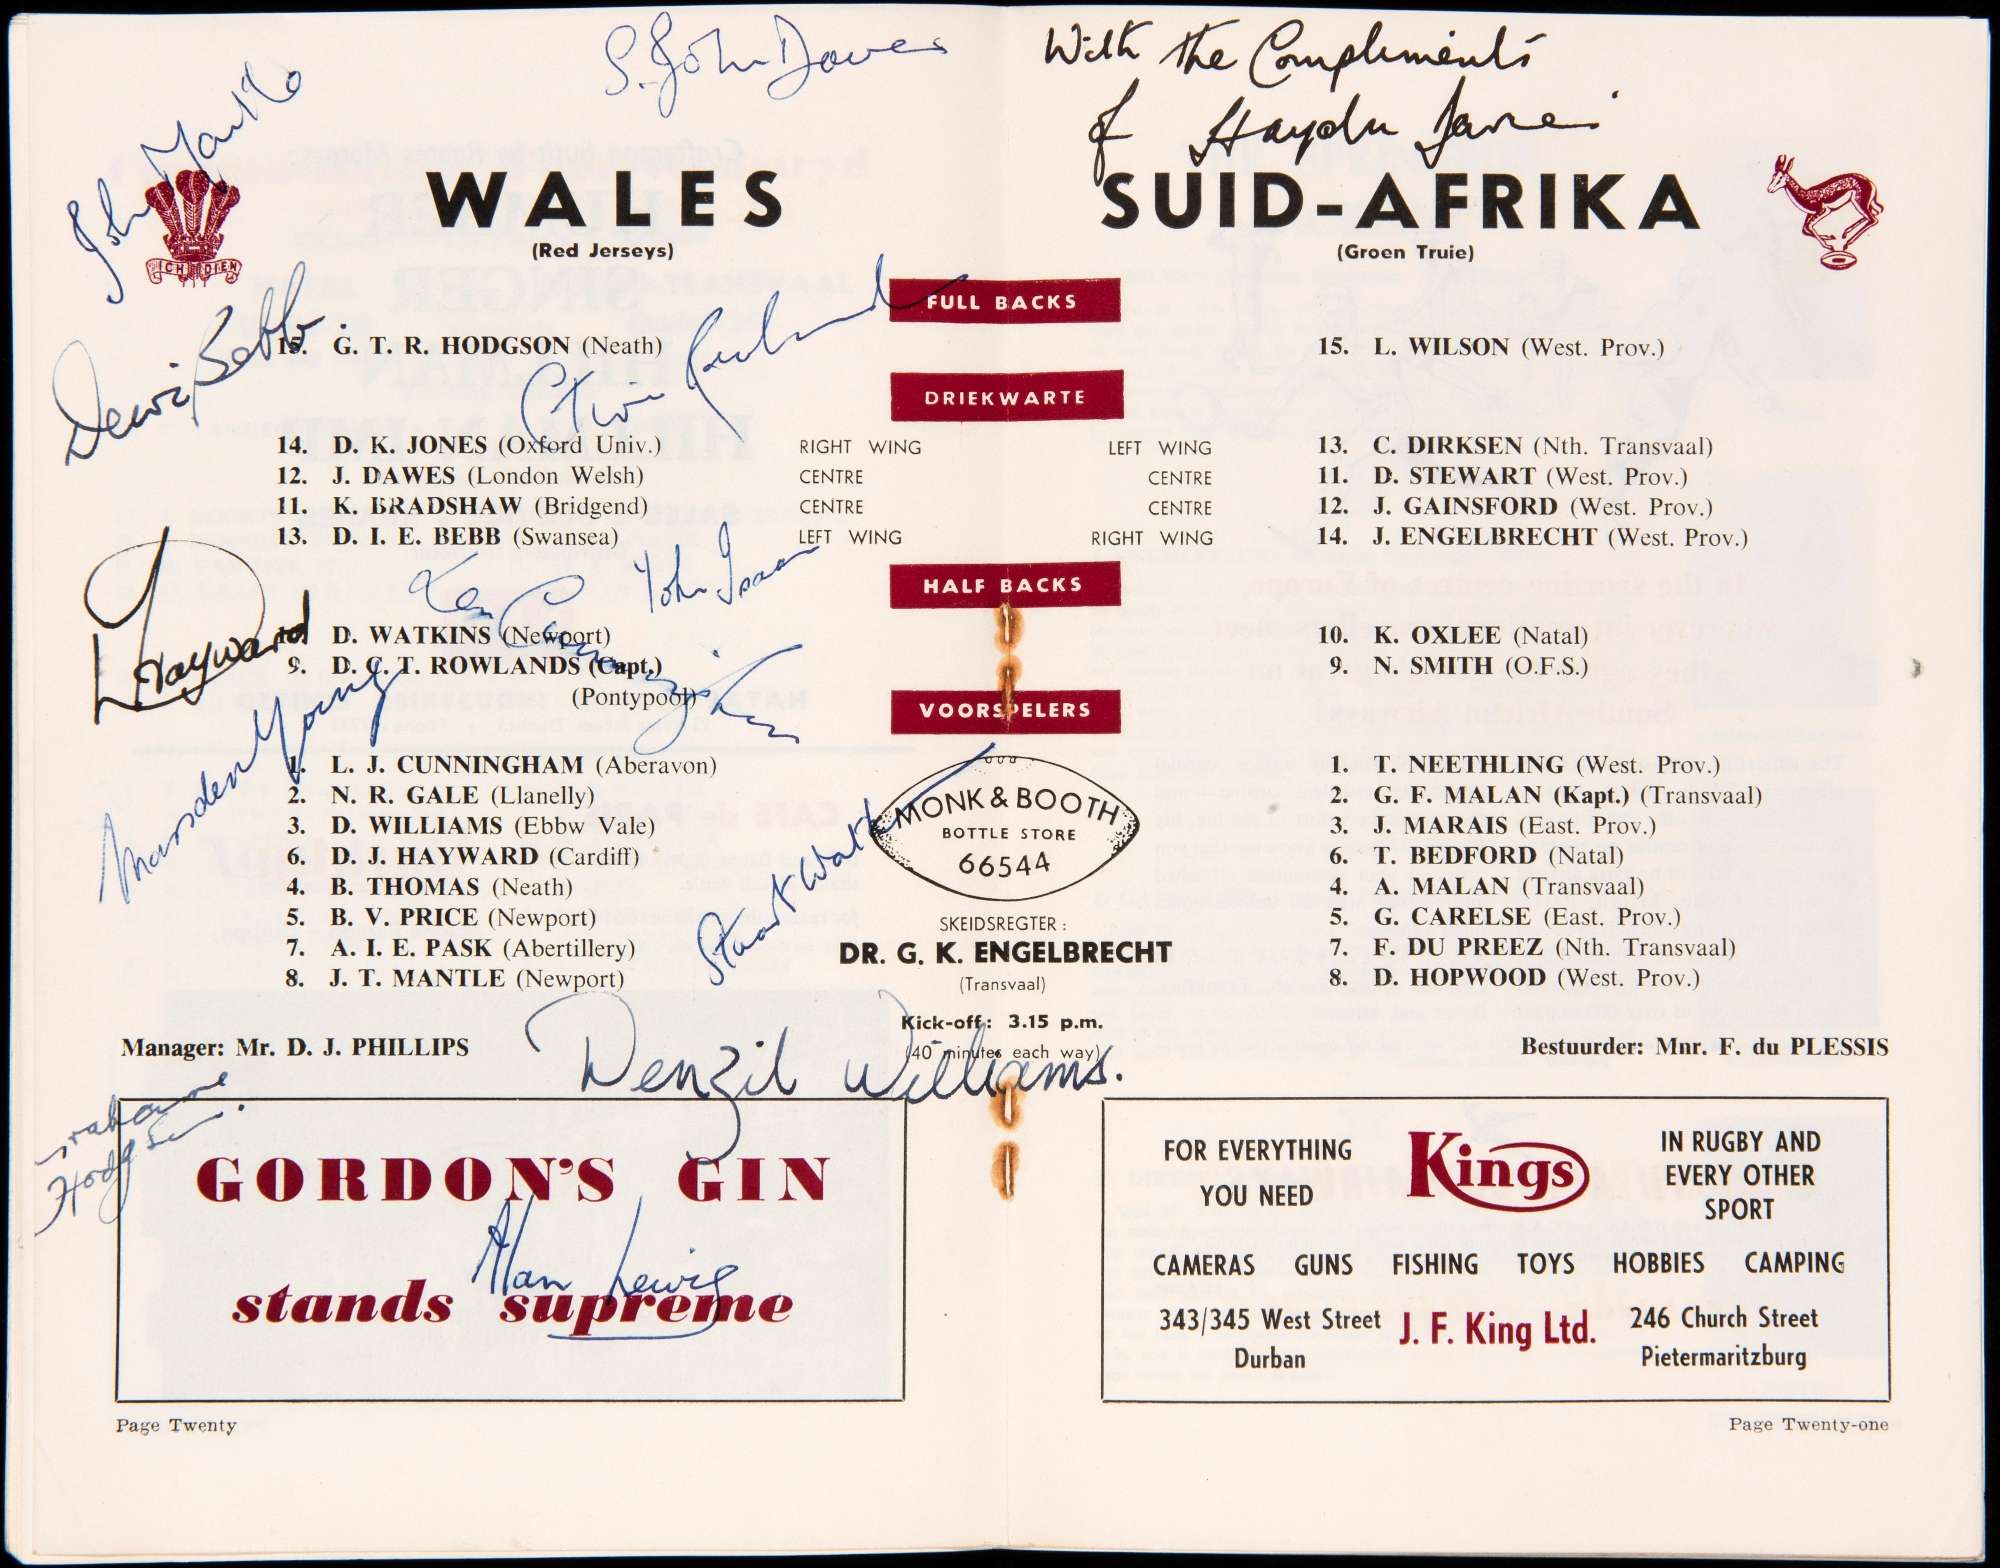 S. John Dawes
With the Compliments
of Haydn
John Mantle
WALES
(Red Jerseys)
ICH DIEN
SUID-AFRIKA
(Groen Truie)
FULL BACKS
Dewi Bebb
15. G. T. R. HODGSON (Neath)
15. L. WILSON (West. Prov.)
DRIEKWARTE
14. D. K. JONES (Oxford Univ.) RIGHT WING
12. J. DAWES (London Welsh) CENTRE
11. K. BRADSHAW (Bridgend) CENTRE
13. D. I. E. BEBB (Swansea) LEFT WING
LEFT WING 13. C. DIRKSEN (Nth. Transvaal)
CENTRE 11. D. STEWART (West. Prov.)
CENTRE 12. J. GAINSFORD (West. Prov.)
RIGHT WING 14. J. ENGELBRECHT (West. Prov.)
John Isaacs
HALF BACKS
D. Hayward
10. D. WATKINS (Newport)
9. D. C. T. ROWLANDS (Capt.)
(Pontypool)
10. K. OXLEE (Natal)
9. N. SMITH (O.F.S.)
Marsden Young
VOORSPELERS
1. L. J. CUNNINGHAM (Aberavon)
2. N. R. GALE (Llanelly)
3. D. WILLIAMS (Ebbw Vale)
6. D. J. HAYWARD (Cardiff)
4. B. THOMAS (Neath)
5. B. V. PRICE (Newport)
7. A. I. E. PASK (Abertillery)
8. J. T. MANTLE (Newport)
Stuart Watkins
MONK & BOOTH
BOTTLE STORE
66544
SKEIDSREGTER:
DR. G. K. ENGELBRECHT
(Transvaal)
Kick-off: 3.15 p.m.
(40 minutes each way)
1. T. NEETHLING (West. Prov.)
2. G. F. MALAN (Kapt.) (Transvaal)
3. J. MARAIS (East. Prov.)
6. T. BEDFORD (Natal)
4. A. MALAN (Transvaal)
5. G. CARELSE (East. Prov.)
7. F. DU PREEZ (Nth. Transvaal)
8. D. HOPWOOD (West. Prov.)
Manager: Mr. D. J. PHILLIPS
Bestuurder: Mnr. F. du PLESSIS
Denzil Williams.
Grahame
Hodgson
GORDON'S GIN
Alan Lewis
stands supreme
FOR EVERYTHING
YOU NEED
Kings
IN RUGBY AND
EVERY OTHER
SPORT
CAMERAS GUNS FISHING TOYS HOBBIES CAMPING
343/345 West Street
Durban
J. F. King Ltd.
246 Church Street
Pietermaritzburg
Page Twenty
Page Twenty-one